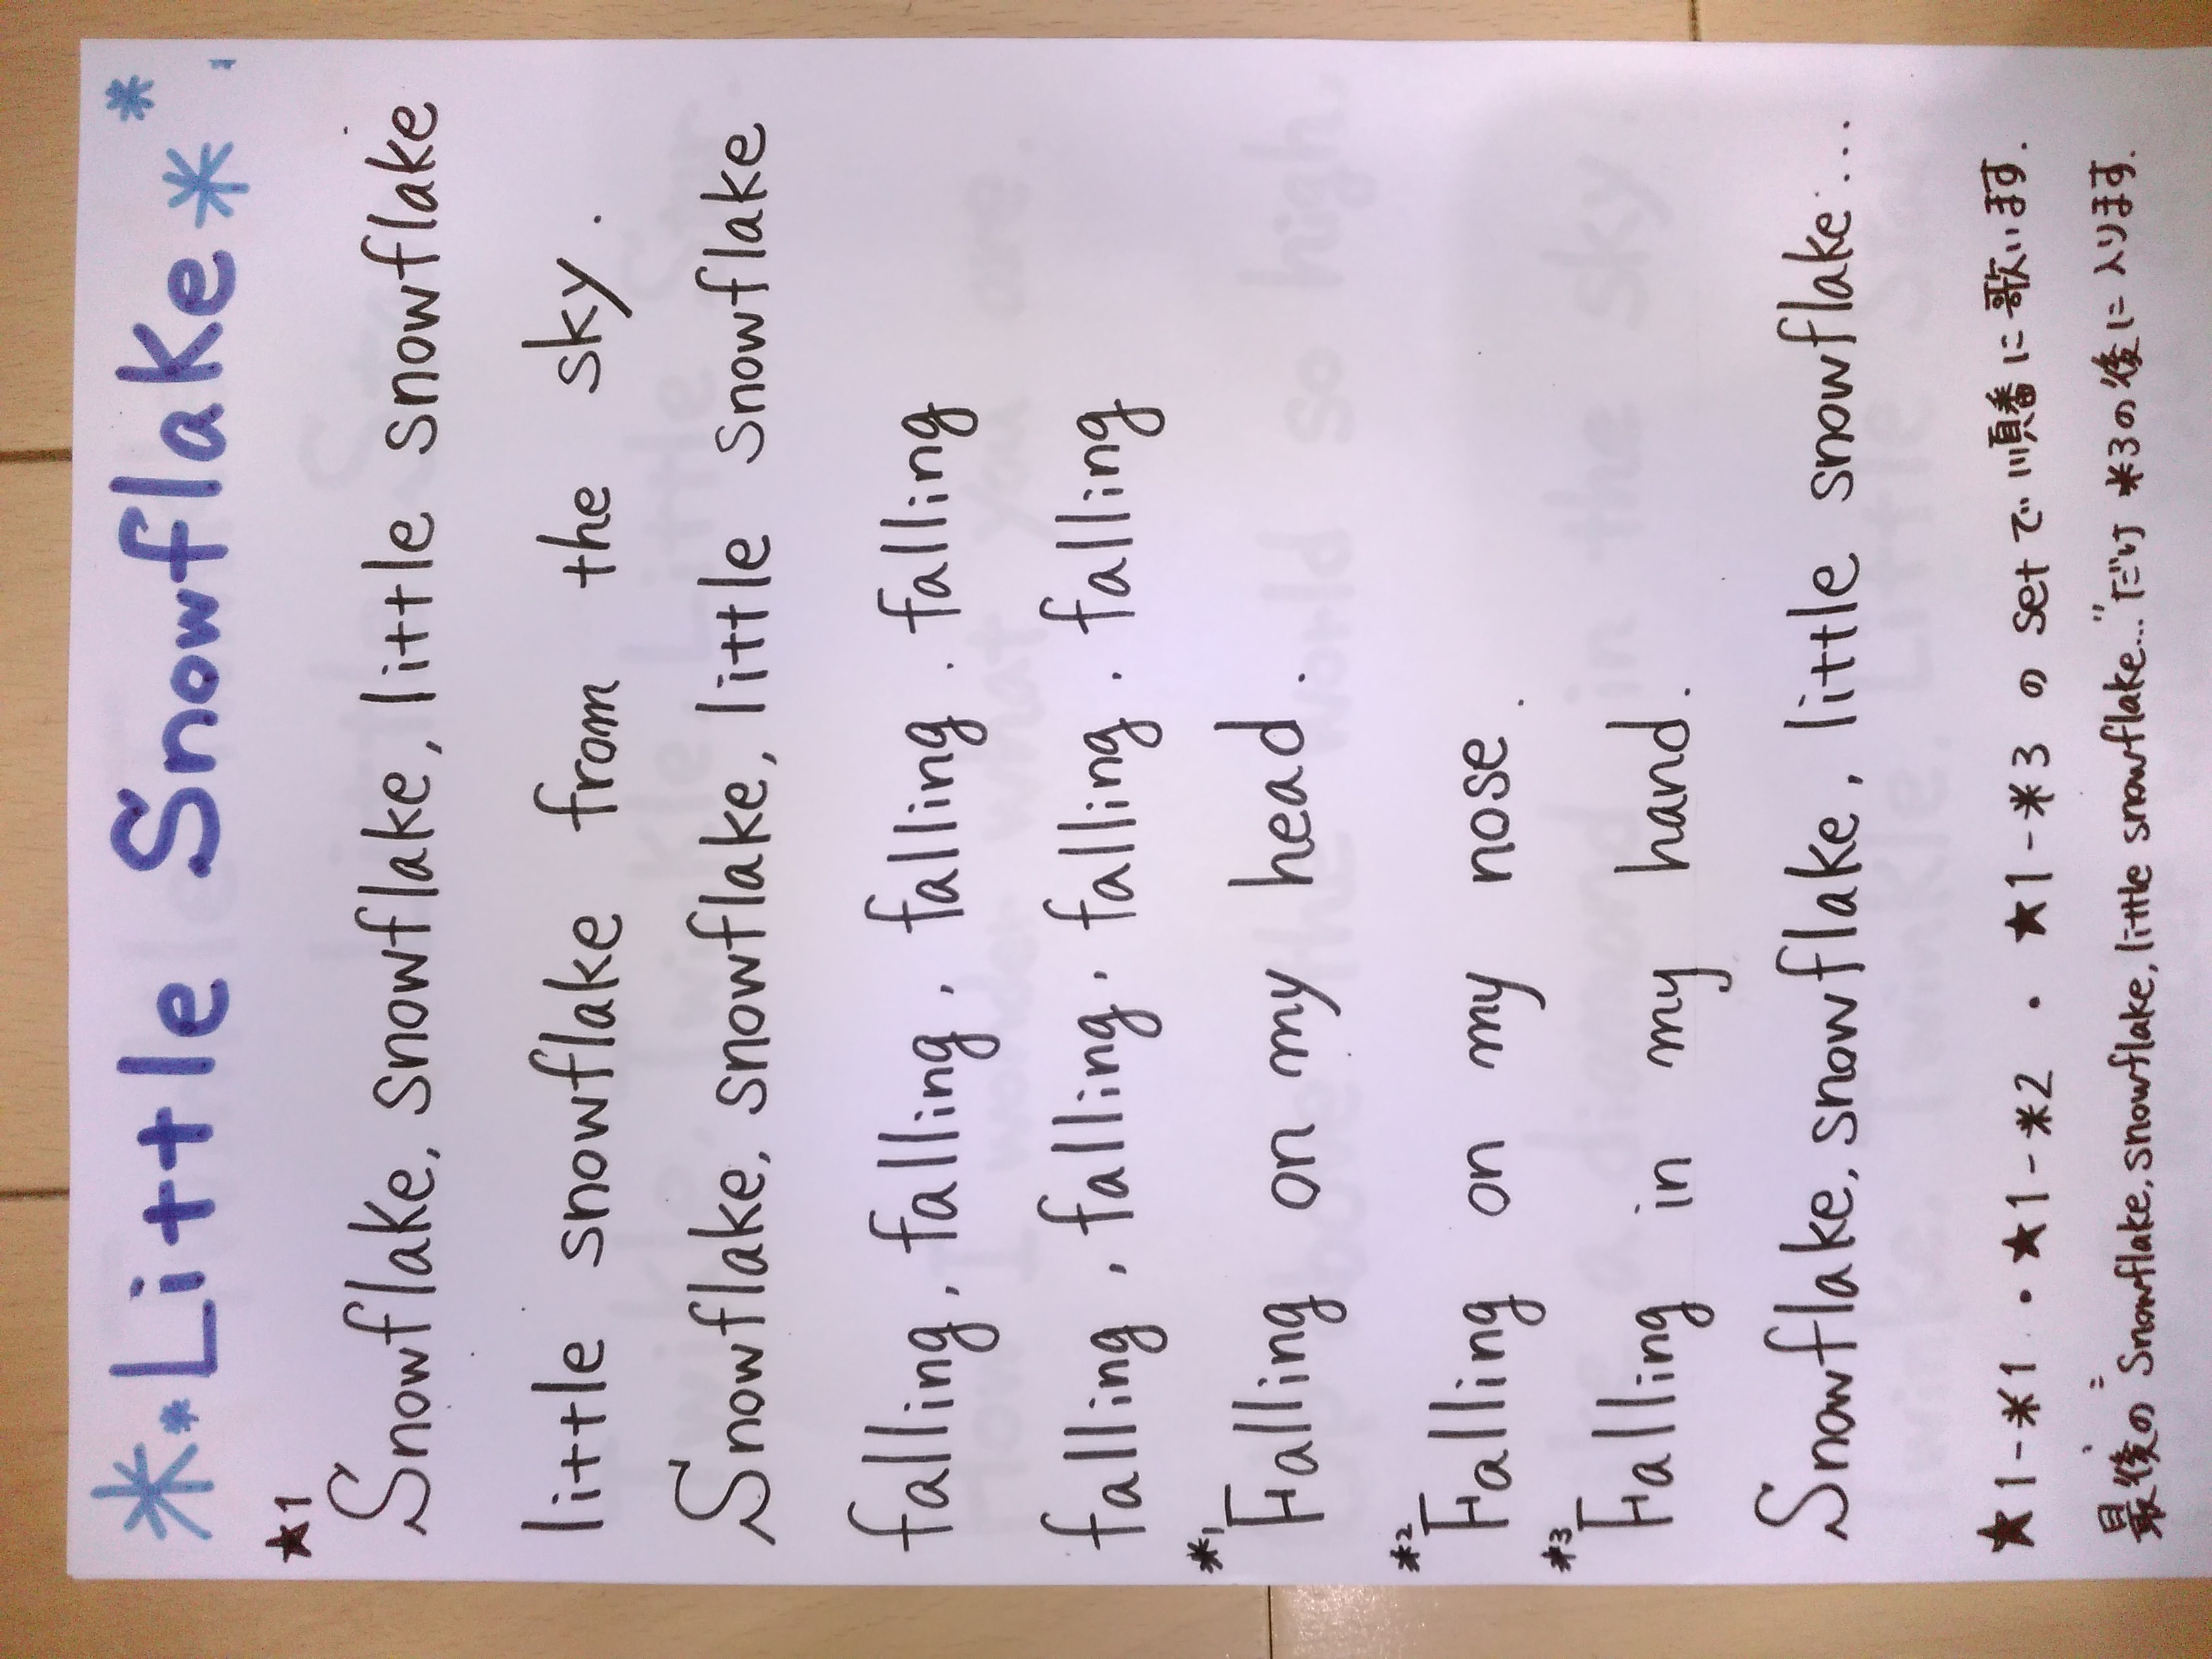 Little Snowflake
★1
Snowflake, snowflake, little snowflake
little snowflake from the sky.
Snowflake, snowflake, little snowflake
falling, falling, falling, falling
falling, falling, falling, falling
*1 Falling on my head.
*2 Falling on my nose.
*3 Falling in my hand.
Snowflake, snowflake, little snowflake....
★1-*1・★1-*2・★1-*3 の setで 順番に歌います.
最後の "Snowflake, snowflake, little snowflake..."だけ *3の後に入ります.